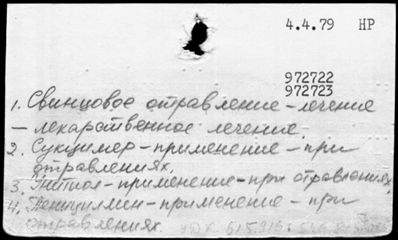 4.4.79 НР
972722
972723
1. Свинцовое отравление – лечение
– лекарственное лечение.
2. Сукцимер – применение – при
отравлениях.
3. Унитиол – применение – при отравлениях.
4. Пеницилламин – применение – при
отравлениях. УДК 615.916: